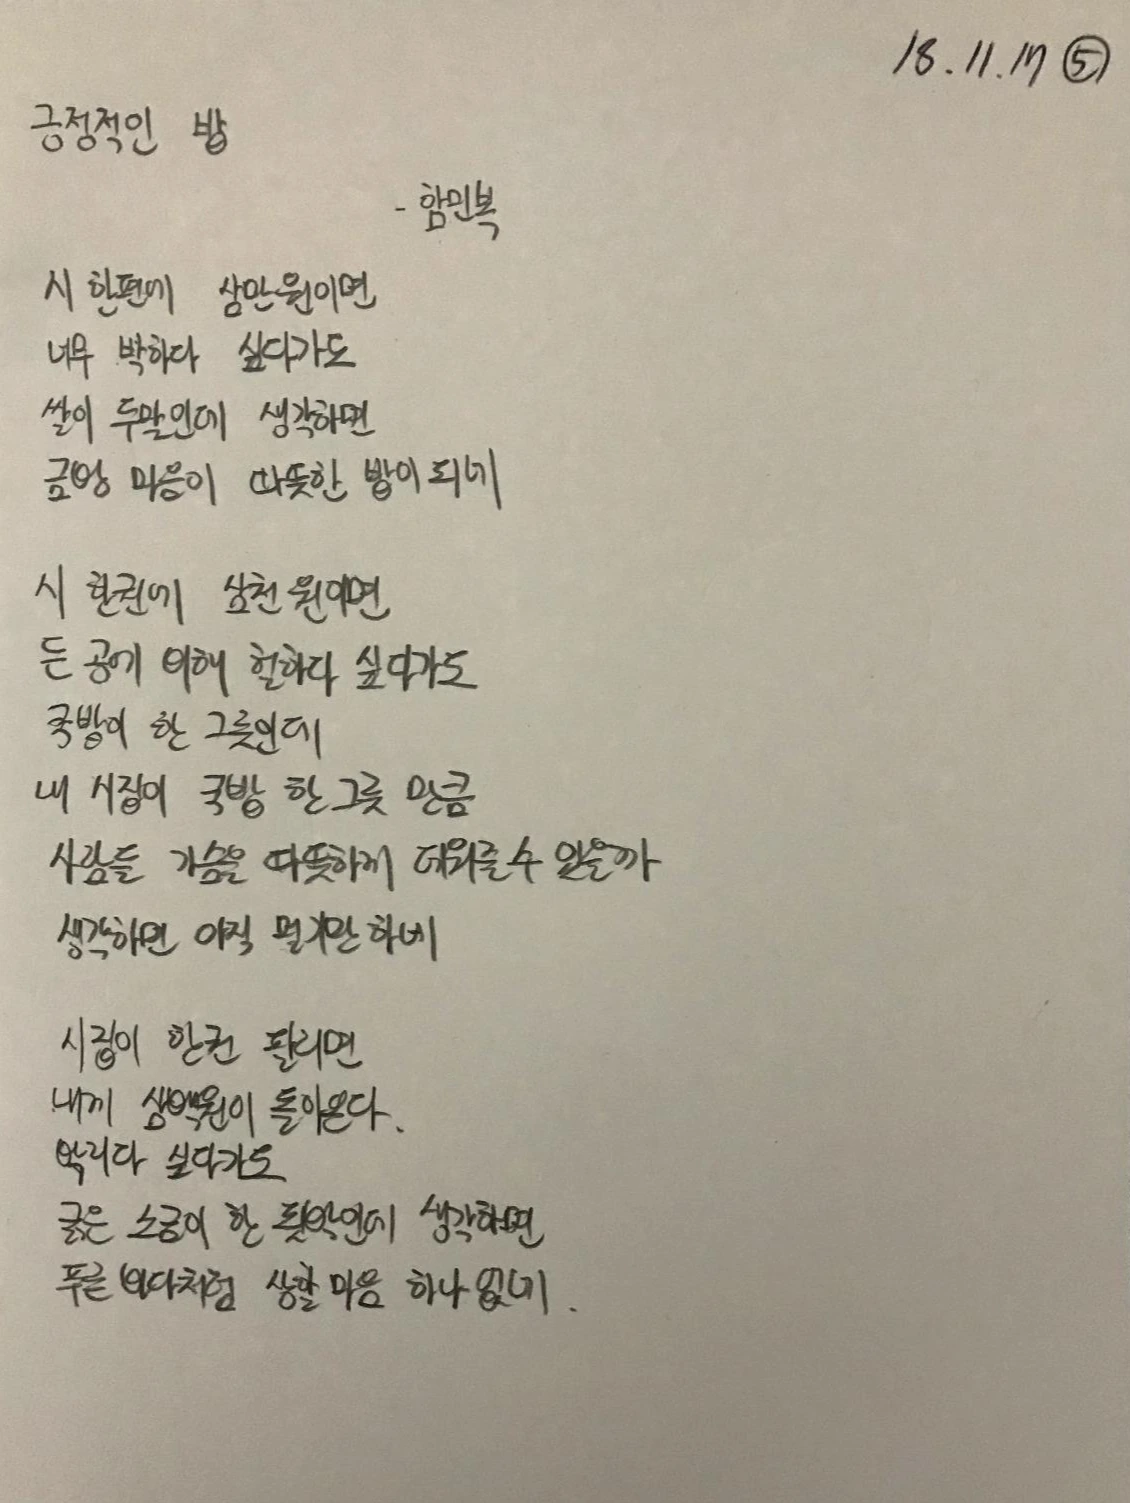 18.11.17 ⑤
긍정적인 밥
- 함민복
시 한편에 삼만원이면
너무 박하다 싶다가도
쌀이 두말인데 생각하면
금방 마음이 따뜻한 밥이 되네
시 한권에 삼천원이면
든 공에 비해 헐하다 싶다가도
국밥이 한 그릇인데
내 시집이 국밥 한그릇 만큼
사람들 가슴을 따뜻하게 데워줄수 있을까
생각하면 아직 멀기만하네
시집이 한권 팔리면
내게 삼백원이 돌아온다.
박리다 싶다가도
굵은 소금이 한 됫박인데 생각하면
푸른 바다처럼 상할 마음 하나 없네.